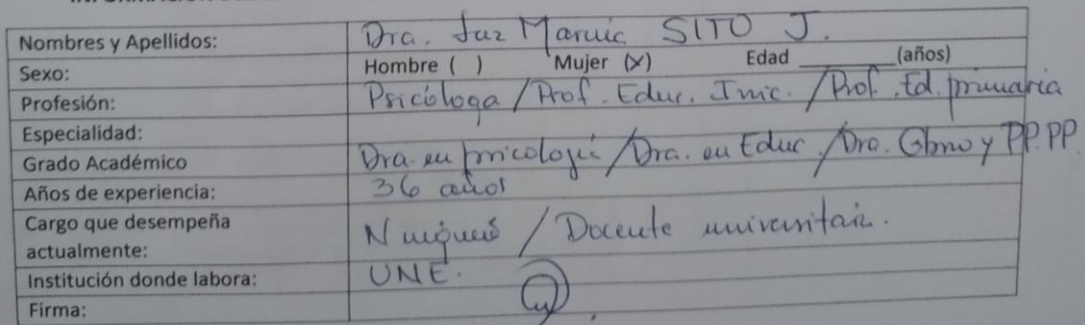 Nombres y Apellidos: Dra. Luz Marina SITO J.
Sexo: Hombre ( ) Mujer (x) Edad ______ (años)
Profesión: Psicóloga / Prof. Educ. Inic. / Prof. Ed. primaria
Especialidad:
Grado Académico Dra. en psicología / Dra. en Educ. / Dra. Gbno y PP.PP.
Años de experiencia: 36 años
Cargo que desempeña
actualmente: / Docente universitaria.
Institución donde labora: UNE.
Firma: